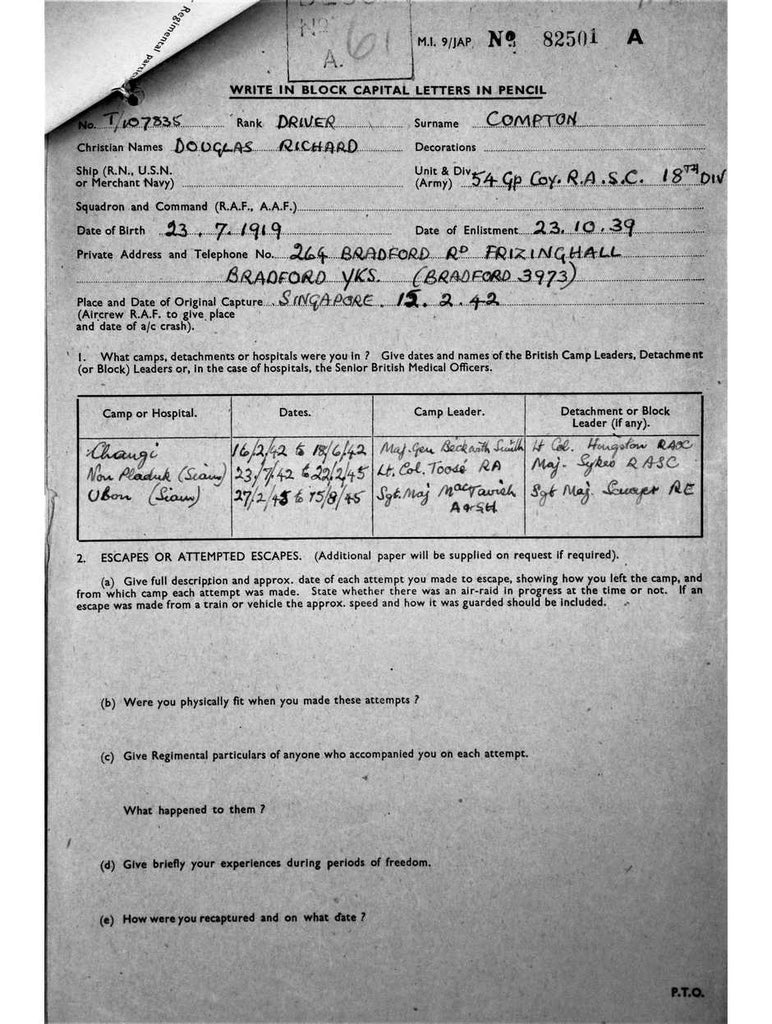 Regimental partic
No.
61
A.
M.I. 9/JAP No 82501 A
WRITE IN BLOCK CAPITAL LETTERS IN PENCIL
No. T/107835 Rank DRIVER Surname COMPTON
Christian Names DOUGLAS RICHARD Decorations
Ship (R.N., U.S.N. or Merchant Navy) Unit & Div. (Army) 54 Gp Coy. R.A.S.C. 18TH DIV
Squadron and Command (R.A.F., A.A.F.)
Date of Birth 23.7.1919 Date of Enlistment 23.10.39
Private Address and Telephone No. 264 BRADFORD RD FRIZINGHALL
BRADFORD YKS. (BRADFORD 3973)
Place and Date of Original Capture SINGAPORE. 15.2.42
(Aircrew R.A.F. to give place
and date of a/c crash).
1. What camps, detachments or hospitals were you in ? Give dates and names of the British Camp Leaders, Detachment
(or Block) Leaders or, in the case of hospitals, the Senior British Medical Officers.
Camp or Hospital. Dates. Camp Leader. Detachment or Block Leader (if any).
Changi 16/2/42 to 18/6/42 Maj. Gen Beckwith Smith Lt Col. RASC
Non Pladuk (Siam) 23/7/42 to 22/2/45 Lt. Col. Toose RA Maj. Sykes RASC
Ubon (Siam) 27/2/45 to 15/8/45 Sgt. Maj MacTavish A & SH Sgt Maj. Sawyer RE
2. ESCAPES OR ATTEMPTED ESCAPES. (Additional paper will be supplied on request if required).
(a) Give full description and approx. date of each attempt you made to escape, showing how you left the camp, and
from which camp each attempt was made. State whether there was an air-raid in progress at the time or not. If an
escape was made from a train or vehicle the approx. speed and how it was guarded should be included.
(b) Were you physically fit when you made these attempts ?
(c) Give Regimental particulars of anyone who accompanied you on each attempt.
What happened to them ?
(d) Give briefly your experiences during periods of freedom.
(e) How were you recaptured and on what date ?
P.T.O.